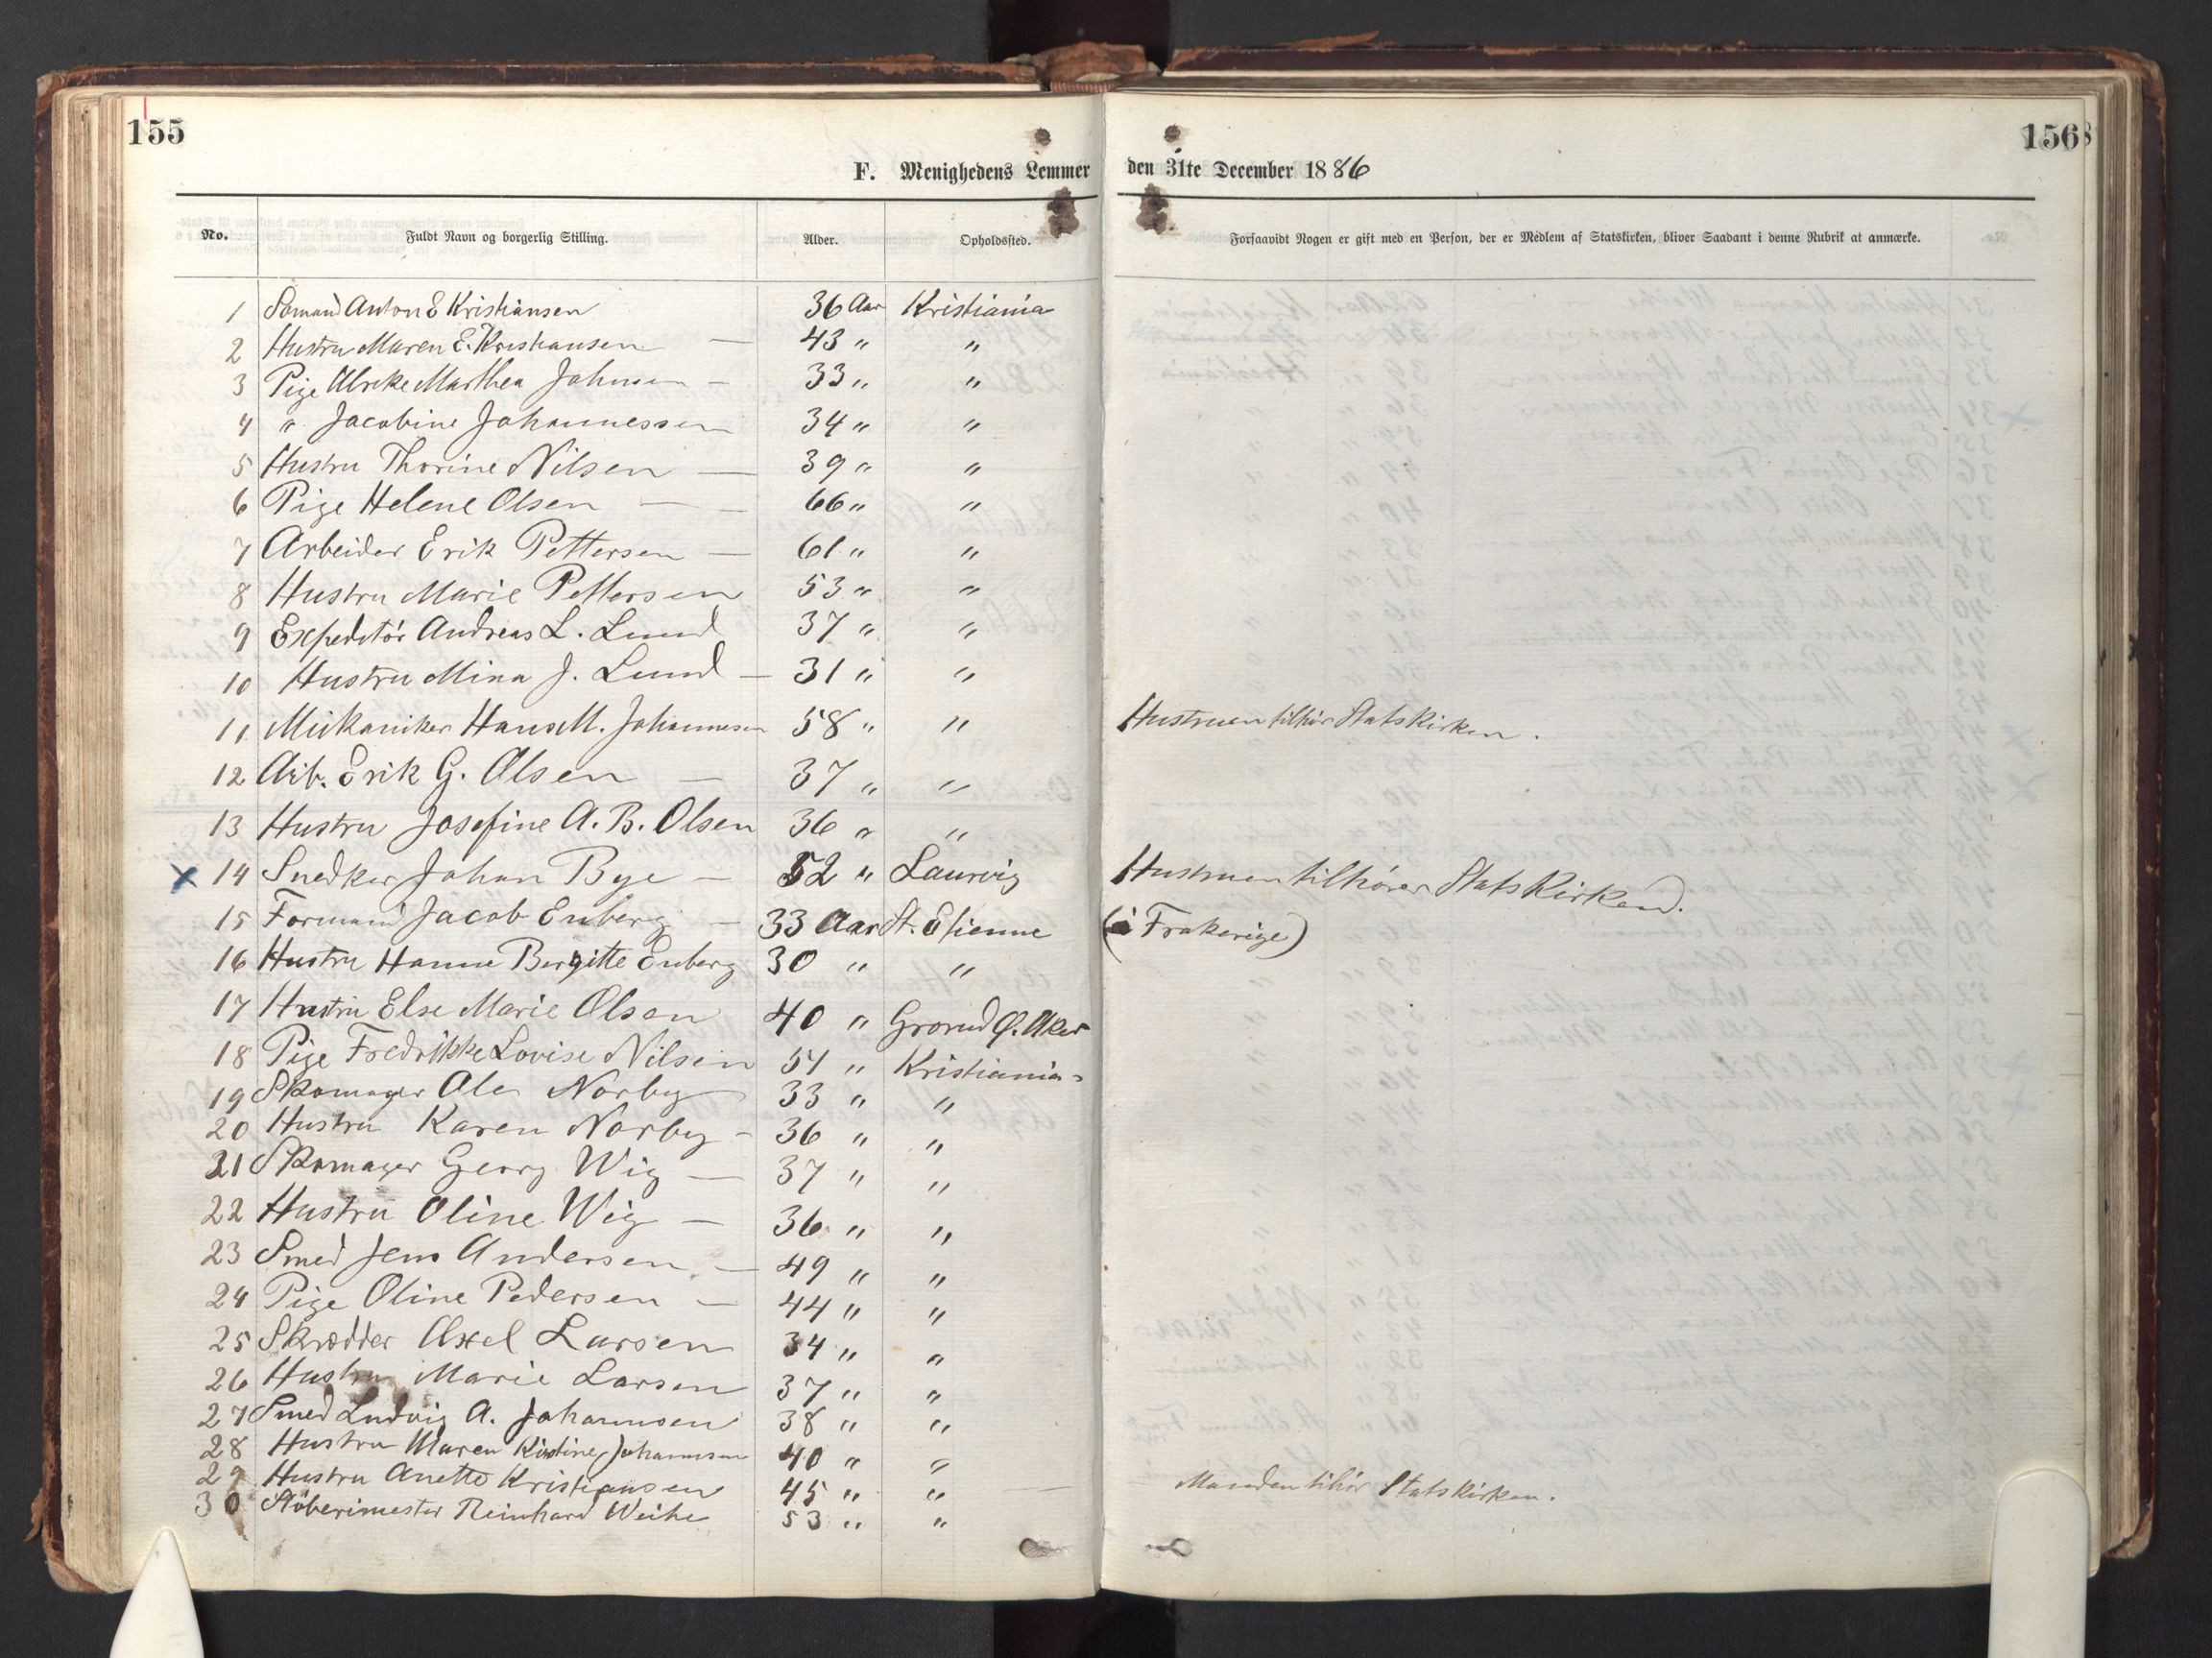 155
156
F. Menighedens Lemmer den 31te December 1886
No. Fuldt Navn og borgerlig Stilling. Alder. Opholdssted. Forsaavidt Nogen er gift med en Person, der er Medlem af Statskirken, bliver Saadant i denne Rubrik at anmærke.
1 Sömand Anton E Kristiansen 36 Aar Kristiania
2 Hustru Maren E. Kristiansen — 43 " "
3 Pige Ulrike Marthea Johnsen — 33 " "
4 " Jacobine Johannessen 34 " "
5 Hustru Thorine Nilsen — 39 " "
6 Pige Helene Olsen — 66 " "
7 Arbeider Erik Pettersen — 61 " "
8 Hustru Marie Pettersen 53 " "
9 Expeditör Andreas L. Lund 37 " "
10 Hustru Mina J. Lund — 31 " "
11 Mekaniker Hans M. Johannesen 58 " " Hustruen tilhör Statskirken.
12 Arb. Erik G. Olsen — 37 " "
13 Hustru Josefine A. B. Olsen 36 " "
x 14 Snedker Johan Bye — 52 " Laurvig Hustruen tilhörer Statskirken.
15 Formand Jacob Enberg — 33 Aar St. Etienne (i Frakerige)
16 Hustru Hanne Bergitte Enberg 30 " "
17 Hustru Else Marie Olsen 40 " Grorud Ø. Aker
18 Pige Fredrikke Lovise Nilsen 51 " Kristiania
19 Skomager Ole Norby 33 " "
20 Hustru Karen Norby — 36 " "
21 Skomager Georg Wig — 37 " "
22 Hustru Oline Wig — 36 " "
23 Smed Jens Andersen — 49 " "
24 Pige Oline Pedersen — 44 " "
25 Skrædder Axel Larsen 34 " "
26 Hustru Marie Larsen 37 " "
27 Smed Ludvig A. Johannsen 38 " "
28 Hustru Maren Kirstine Johannsen 40 " "
29 Hustru Anette Kristiansen 45 " " — Manden tilhör Statskirken.
30 Stöberimester Reinhard Weihe 53 " "